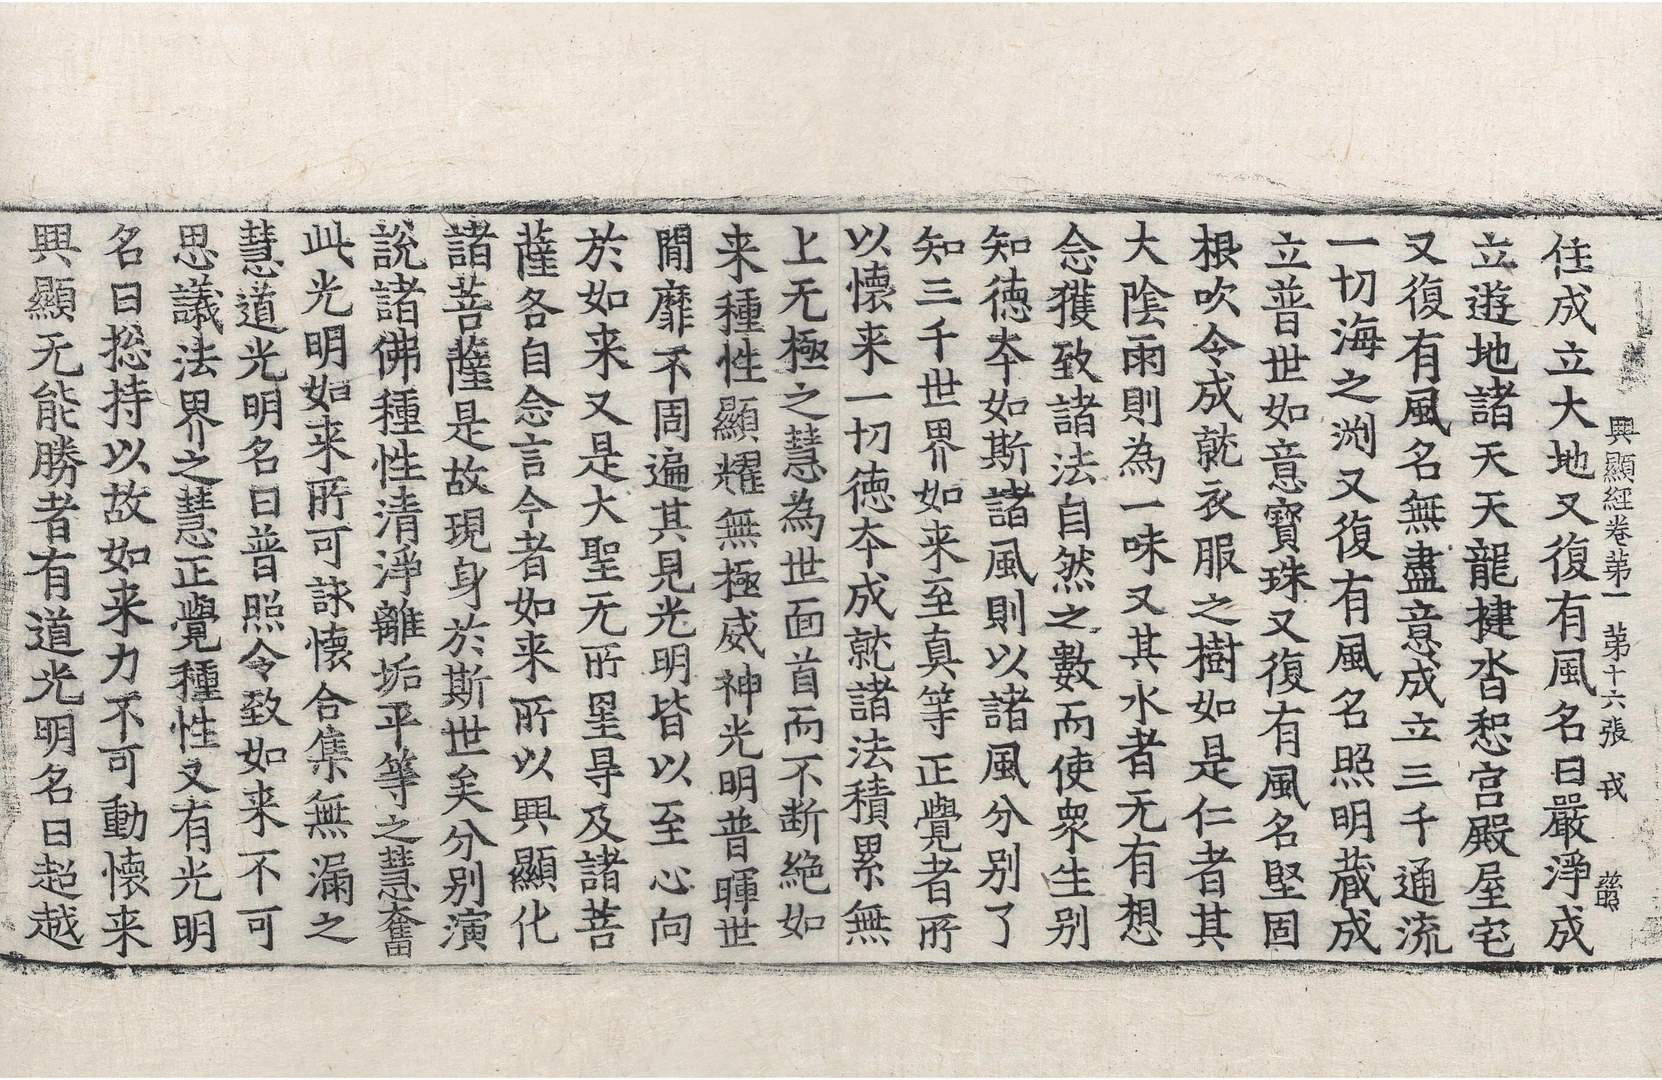 興顯經卷第一 第十六張 戎
住成立大地又復有風名曰嚴淨成
立遊地諸天天龍揵沓惒宮殿屋宅
又復有風名無盡意成立三千通流
一切海之渕又復有風名照明蔵成
立普世如意寶珠又復有風名堅固
根吹令成就衣服之樹如是仁者其
大陰雨則為一味又其水者无有想
念獲致諸法自然之數而使衆生别
知徳夲如斯諸風則以諸風分别了
知三千世界如来至真等正覺者所
以懷来一切徳夲成就諸法積累無
上无極之慧為世面首而不断絶如
来種性顯耀無極威神光明普暉世
間靡不周遍其見光明皆以至心向
於如来又是大聖无所罣㝵及諸菩
薩各自念言今者如来所以興顯化
諸菩薩是故現身於斯世矣分别演
說諸佛種性清淨離垢平等之慧奮
此光明如来所可詠懷合集無漏之
慧道光明名曰普照令致如来不可
思議法界之慧正覺種性又有光明
名曰捴持以故如来力不可動懷来
興顯无能勝者有道光明名曰超越